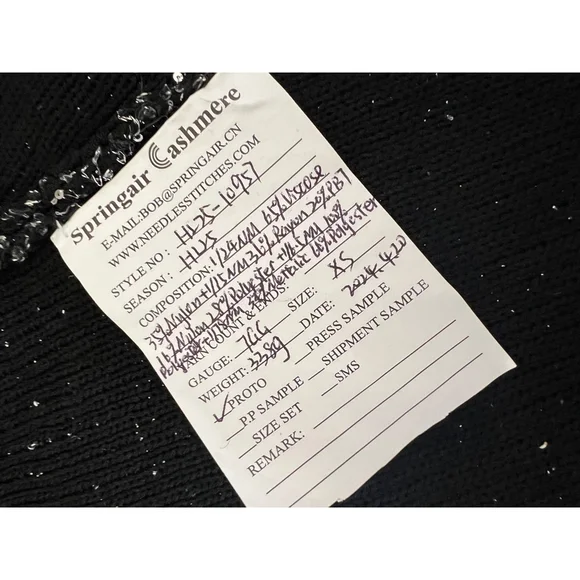 Springair Cashmere
E-MAIL:BOB@SPRINGAIR.CN
WWW.NEEDLESSTITCHES.COM
STYLE NO : HL25-10957
SEASON : HL25
COMPOSITION: 1/24NM 65% Viscose
35% Nylon + 1/15NM 38% Rayon 20% PBT
Nylon 28% Polyester + 100%
Polyester Metallic Polyester
YARN COUNT & ENDS:
GAUGE: 7GG SIZE: XS
WEIGHT: 338g DATE: 2024.4.20
✓ PROTO PRESS SAMPLE
P.P SAMPLE SHIPMENT SAMPLE
SIZE SET SMS
REMARK: